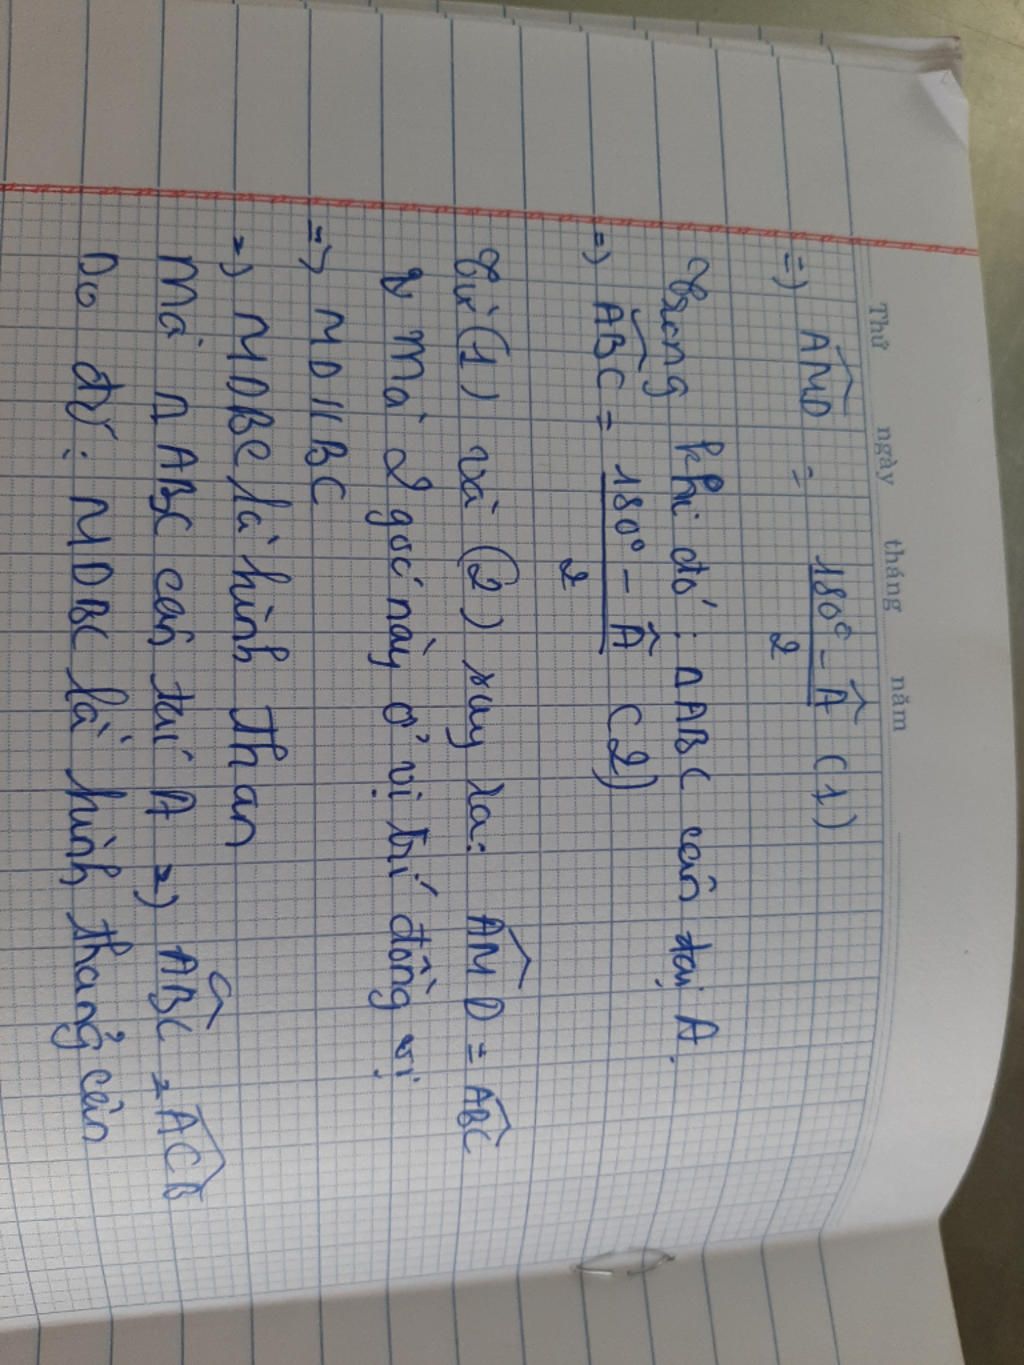 Thứ ngày tháng năm
=) AM̂D = 180° - Â / 2 (1)
Trong khi đó : ∆ ABC cân tại A.
=) AB̂C = 180° - Â / 2 (2)
Từ (1) và (2) suy ra: AM̂D = AB̂C
Mà 2 góc này ở vị trí đồng vị
=) MD // BC
=) MDBC là hình than
Mà ∆ ABC cân tai A =) AB̂C = AĈB
Do đó : MDBC là hình thang cân